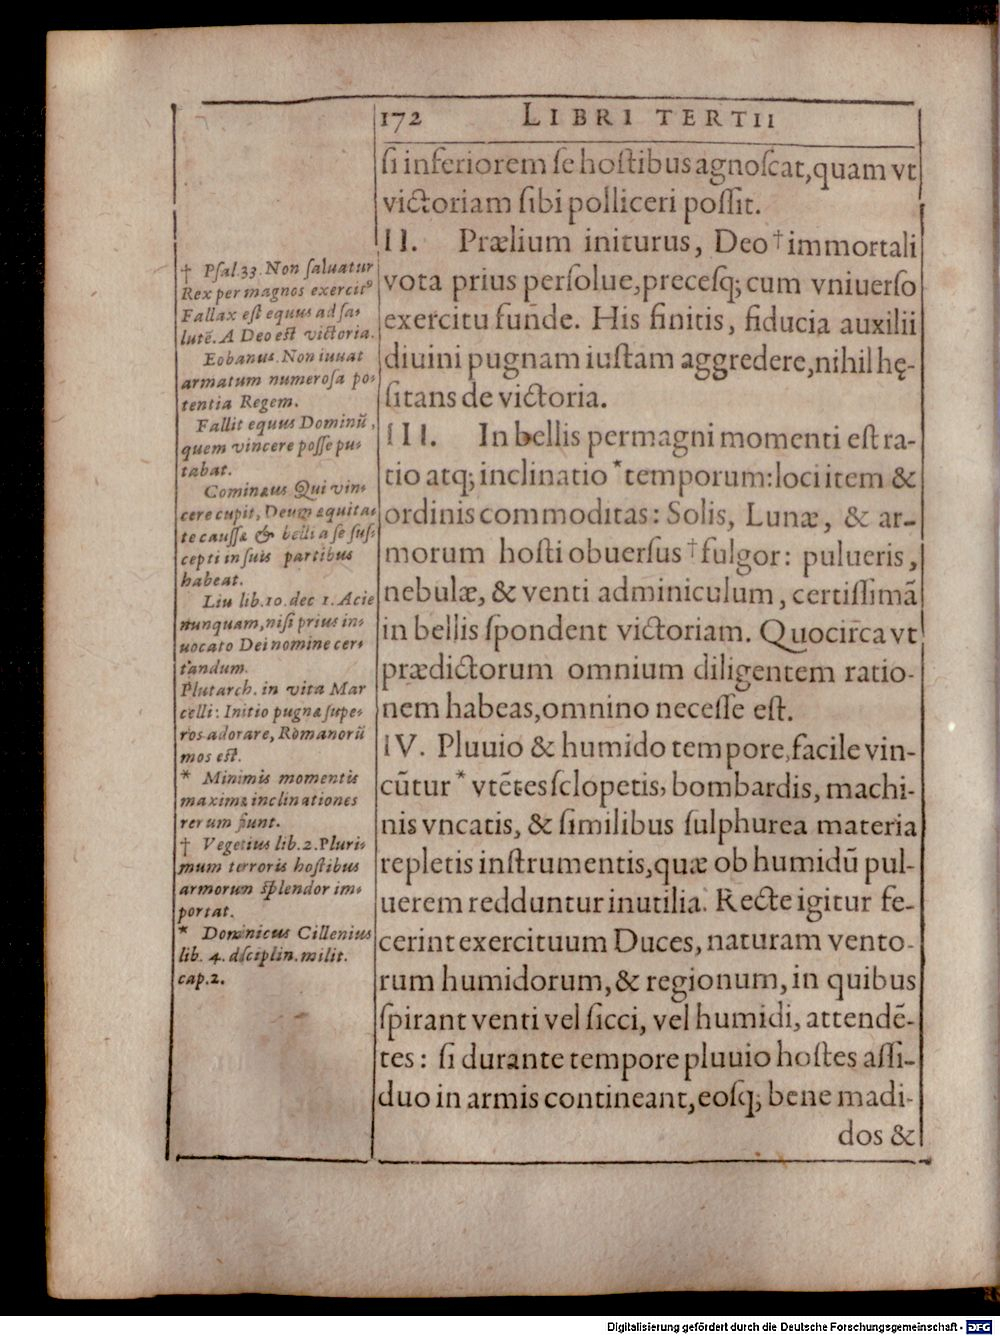 172 LIBRI TERTII
si inferiorem se hostibus agnoscat, quam vt
victoriam sibi polliceri possit.
II. Prælium initurus, Deo † immortali
vota prius persolue, precesq; cum vniuerso
exercitu funde. His finitis, fiducia auxilii
diuini pugnam iustam aggredere, nihil hę-
sitans de victoria.
III. In bellis permagni momenti est ra-
tio atq; inclinatio * temporum: loci item &
ordinis commoditas: Solis, Lunæ, & ar-
morum hosti obuersus † fulgor: pulueris,
nebulæ, & venti adminiculum, certissimã
in bellis spondent victoriam. Quocirca vt
prædictorum omnium diligentem ratio-
nem habeas, omnino necesse est.
IV. Pluuio & humido tempore, facile vin-
cũtur * vtẽtes sclopetis, bombardis, machi-
nis vncatis, & similibus sulphurea materia
repletis instrumentis, quæ ob humidũ pul-
uerem redduntur inutilia. Recte igitur fe-
cerint exercituum Duces, naturam vento-
rum humidorum, & regionum, in quibus
spirant venti vel sicci, vel humidi, attendẽ-
tes: si durante tempore pluuio hostes assi-
duo in armis contineant, eosq; bene madi-
dos &
† Psal. 33. Non saluatur
Rex per magnos exercitꝰ
Fallax est equus ad sa-
lutẽ. A Deo est victoria.
Eobanus. Non iuuat
armatum numerosa po-
tentia Regem.
Fallit equus Dominũ,
quem vincere posse pu-
tabat.
Cominæus Qui vin-
cere cupit, Deum æquita-
te caussæ & belli a se sus-
cepti in suis partibus
habeat.
Liu lib. 10. dec 1. Acie
nunquam, nisi prius in-
uocato Dei nomine cer-
tandum.
Plutarch. in vita Mar
celli: Initio pugnæ supe-
ros adorare, Romanorũ
mos est.
* Minimis momentis
maximæ inclinationes
rerum fiunt.
† Vegetius lib. 2. Pluri-
mum terroris hostibus
armorum splendor im-
portat.
* Dominicus Cillenius
lib. 4. dsciplin. milit.
cap. 2.
Digitalisierung gefördert durch die Deutsche Forschungsgemeinschaft - DFG